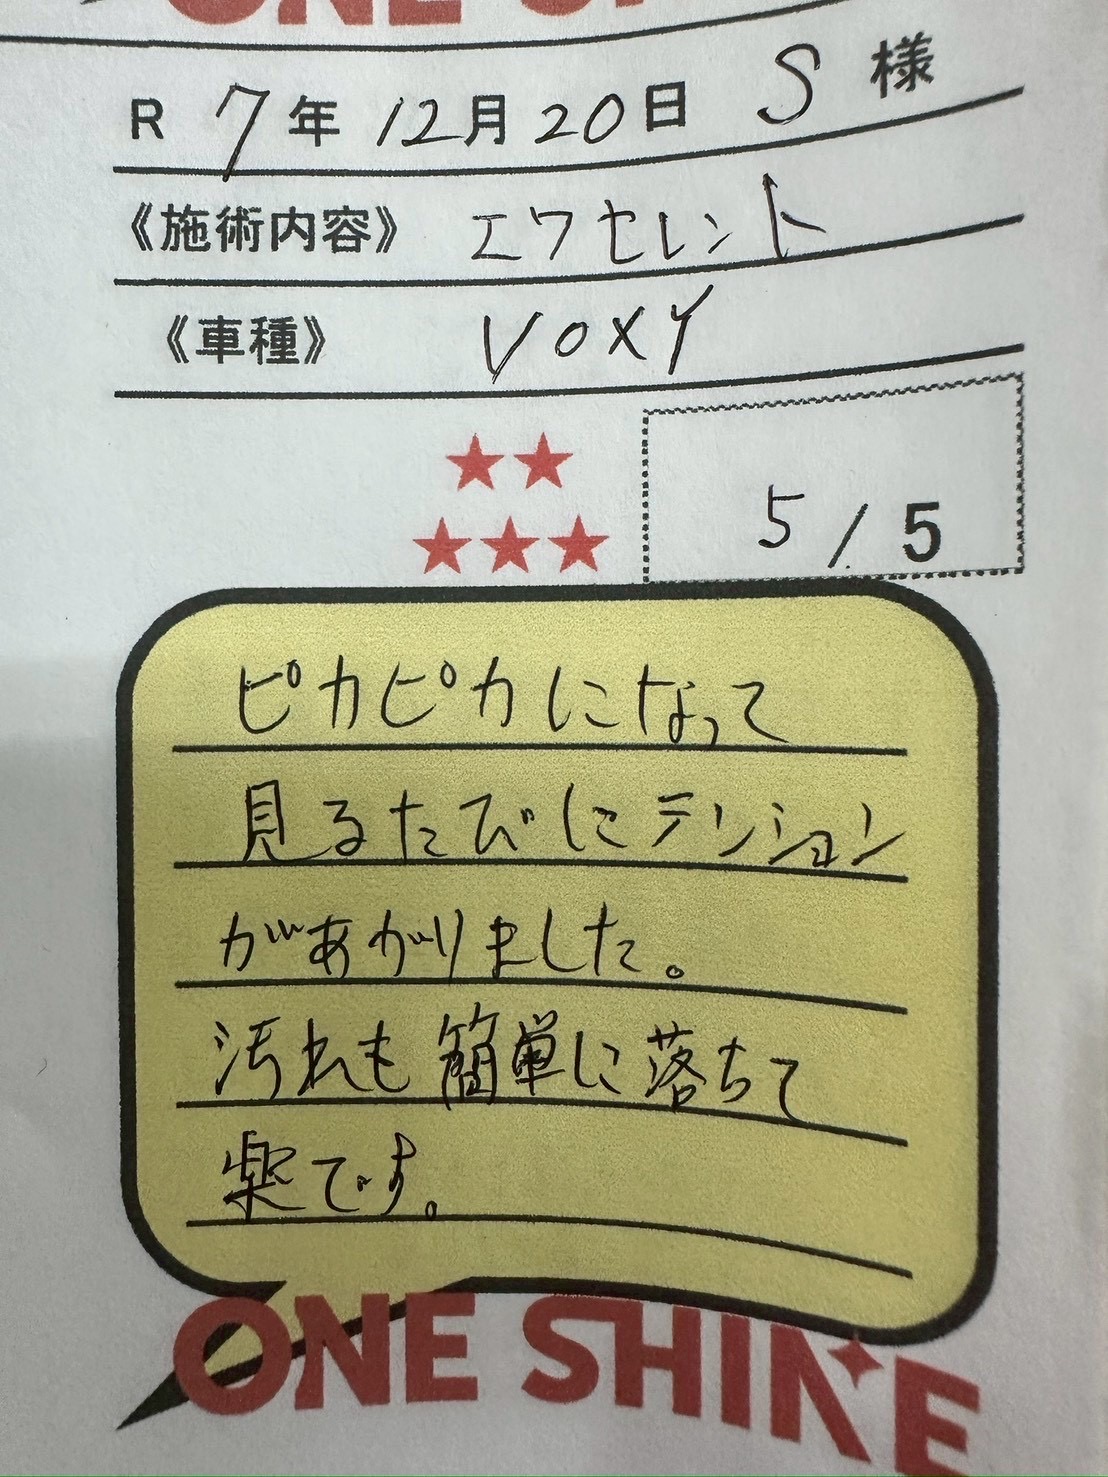 ONE SHINE
R 7年 12月20日 S 様
《施術内容》 エクセレント
《車種》 VOXY
★★
★★★
5/5
ピカピカになって
見るたびにテンション
があがりました。
汚れも簡単に落ちて
楽です。
ONE SHINE